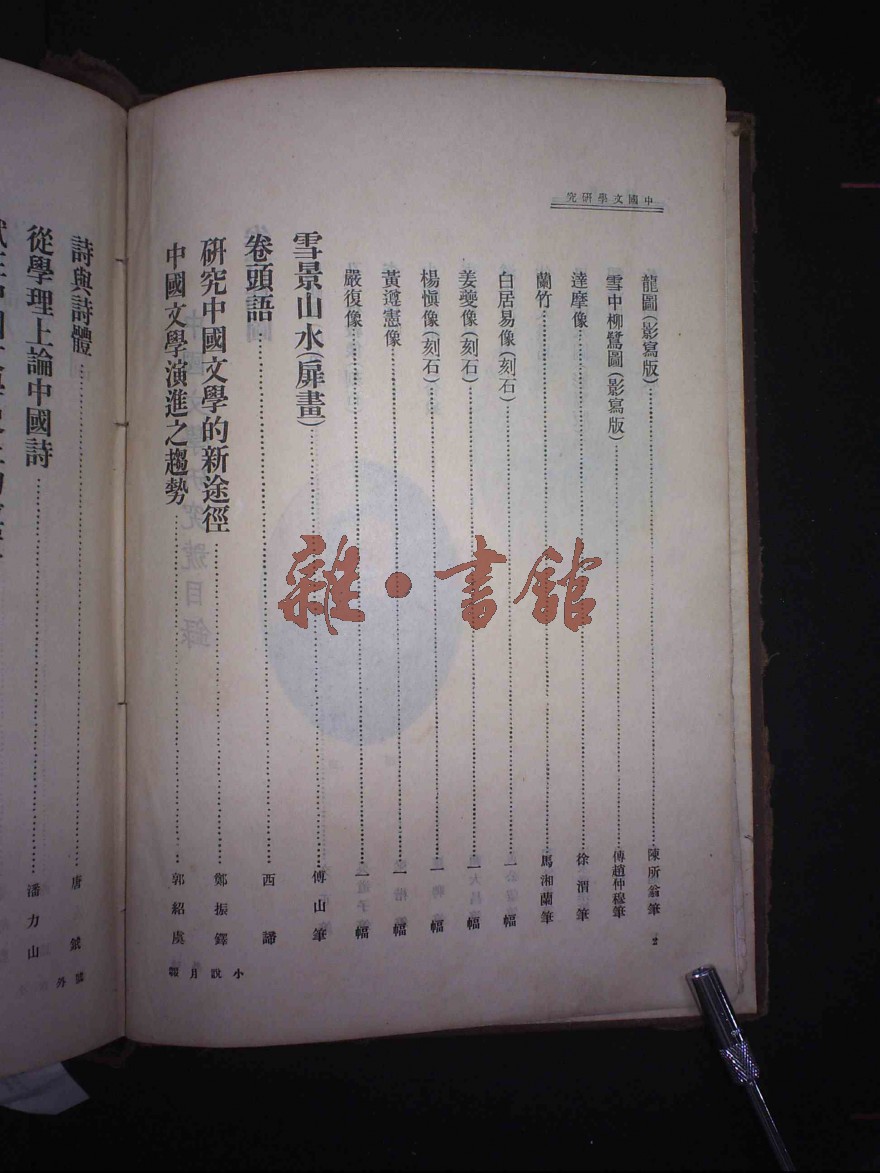 中國文學研究
龍圖(影寫版)……陳所翁筆
2
雪中柳鷺圖(影寫版)……傅趙仲穆筆
達摩像……徐渭筆
蘭竹……馬湘蘭筆
白居易像(刻石)……一幅
姜夔像(刻石)……一幅
楊愼像(刻石)……一幅
黃遵憲像……一幅
嚴復像……一幅
雪景山水(扉畫)……傅山筆
卷頭語……西諦
硏究中國文學的新途徑……鄭振鐸
中國文學演進之趨勢……郭紹虞
小說月報
詩與詩體……唐鉞
從學理上論中國詩……潘力山
號外
雜·書館